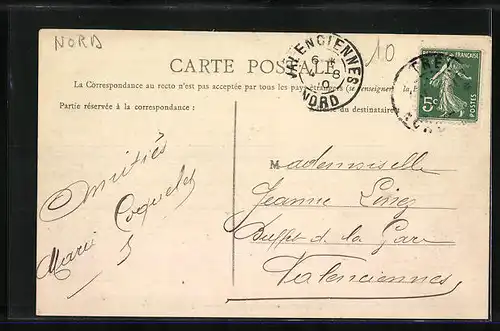 NORD
10
CARTE POSTALE
VALENCIENNES
6 *
4 - 8
10
NORD
FRANÇAISE
5c
POSTES
La Correspondance au recto n'est pas acceptée par tous les pays étrangers (se renseigner
Partie réservée à la correspondance :
du destinataire
Mademoiselle
Jeanne
Buffet de la Gare
Valenciennes
Amitiés
Marie Coquelet